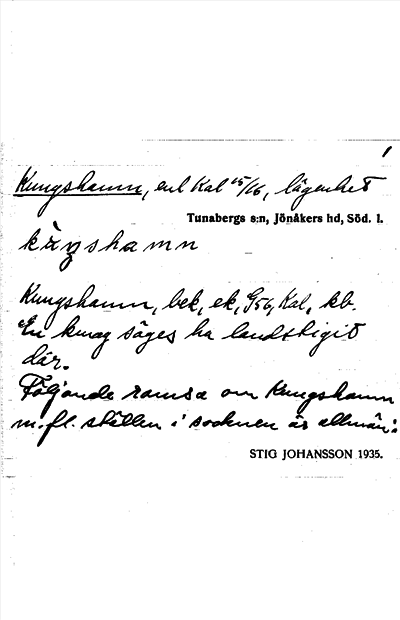 1
Kungshamn, enl Kal 65/66, lägenhet
Tunabergs s:n, Jönåkers hd, Söd. l.
kùŋshamn
Kungshamn, bek, ek, G56, Kal, kb.
En kung säges ha landstigit
där.
Följande ramsa om Kungshamn
m.fl. ställen i socknen är allmän:
STIG JOHANSSON 1935.